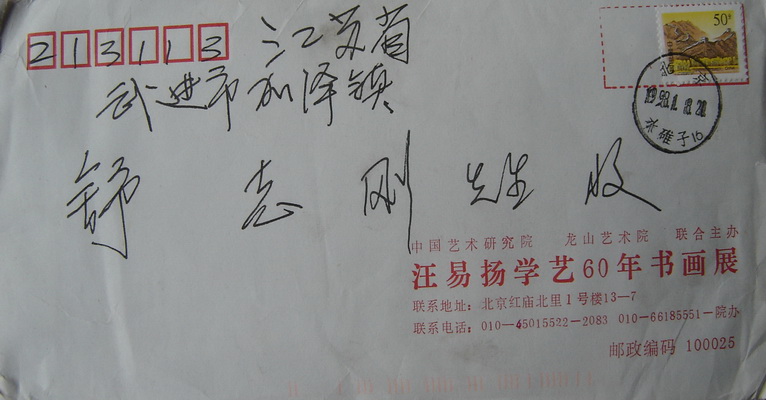 213113 江苏省
武进市加泽镇
舒志刚先生收
50分
北京
水碓子16
中国艺术研究院 龙山艺术院 联合主办
汪易扬学艺60年书画展
联系地址：北京红庙北里1号楼13—7
联系电话：010—65015522—2083 010—66185551—院办
邮政编码 100025